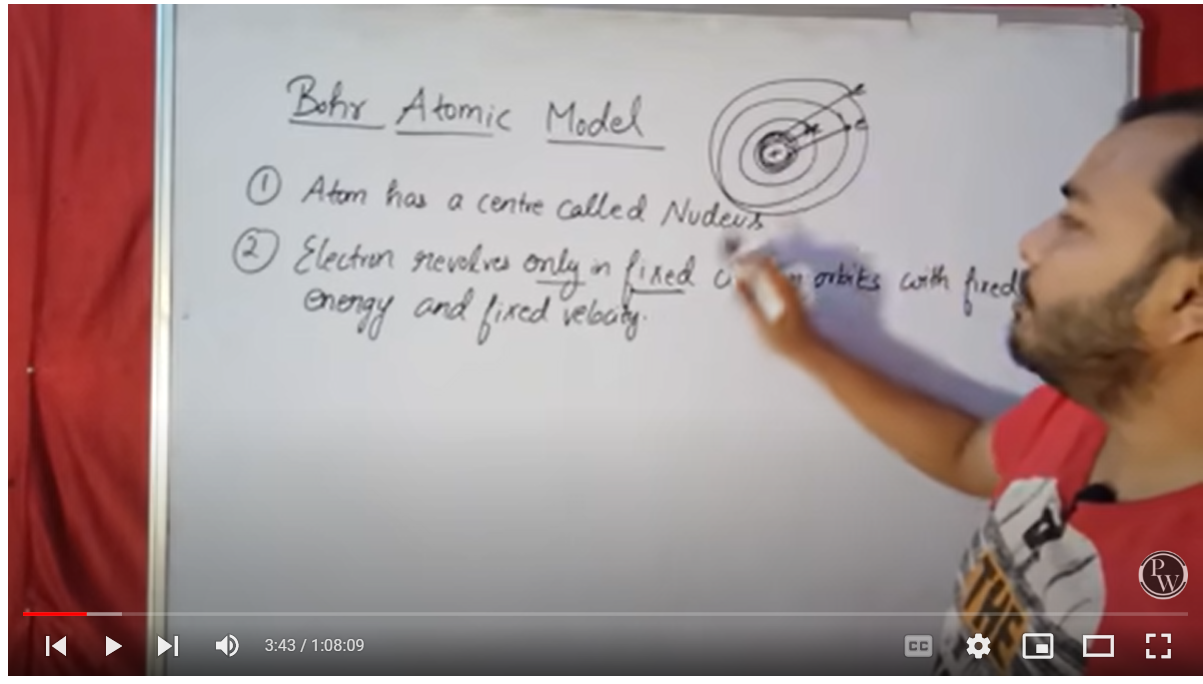 Bohr Atomic Model
e
e
① Atom has a centre called Nucleus
② Electron revolves only in fixed orbits with fixed
energy and fixed velocity.
THE
PW
3:43 / 1:08:09
CC